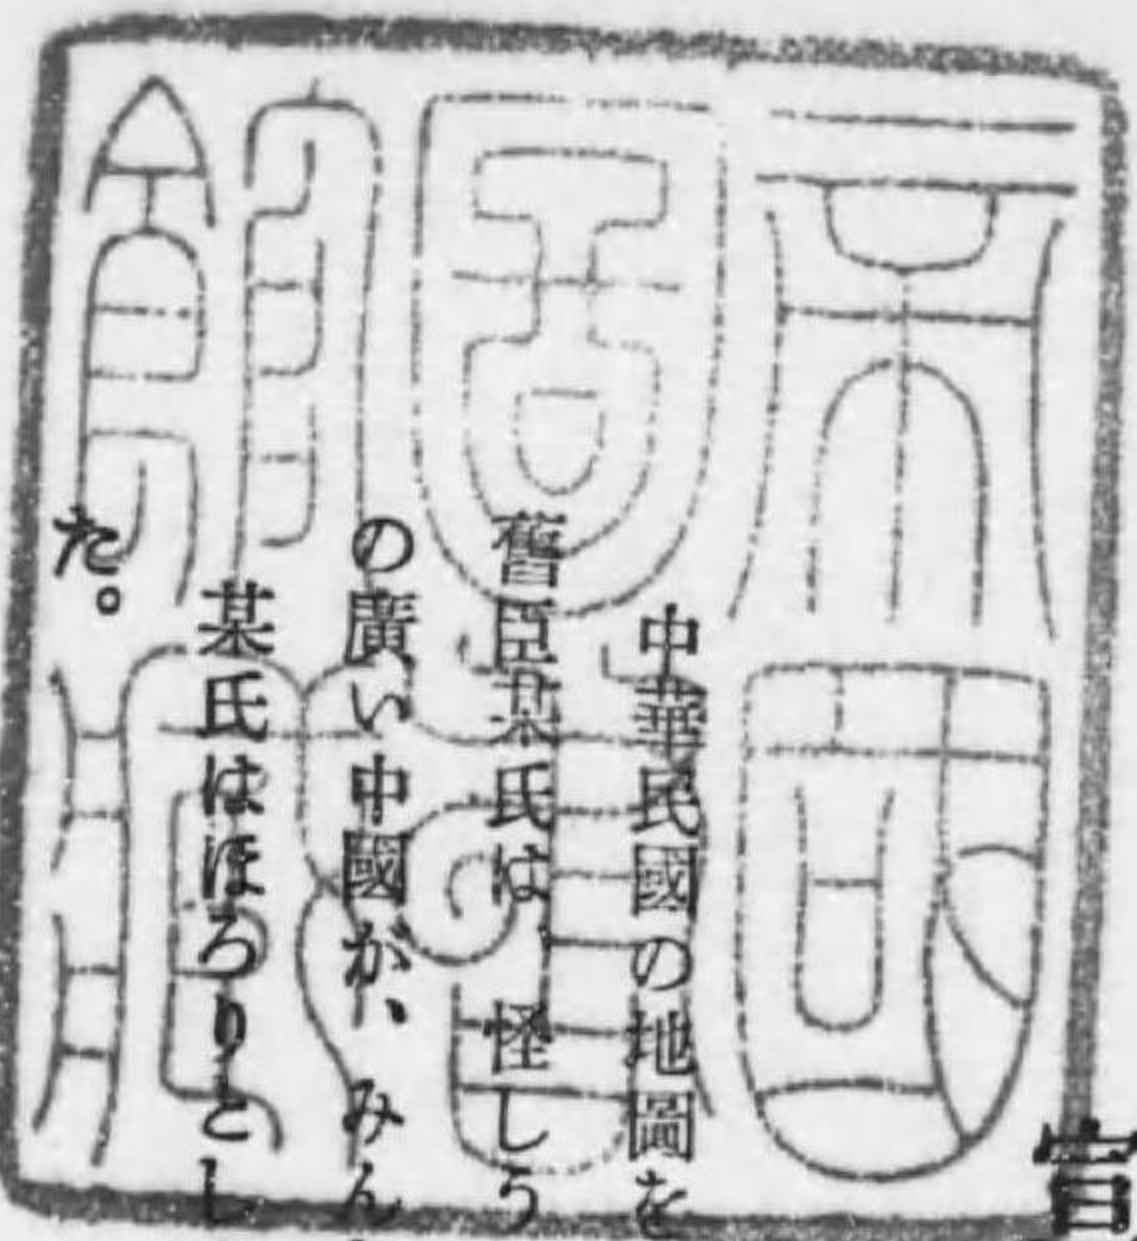 帝國
圖書
館藏
中華民國の地圖を
舊臣某氏は、怪しう
の廣い中國が、みん
某氏はほろりとし
た。